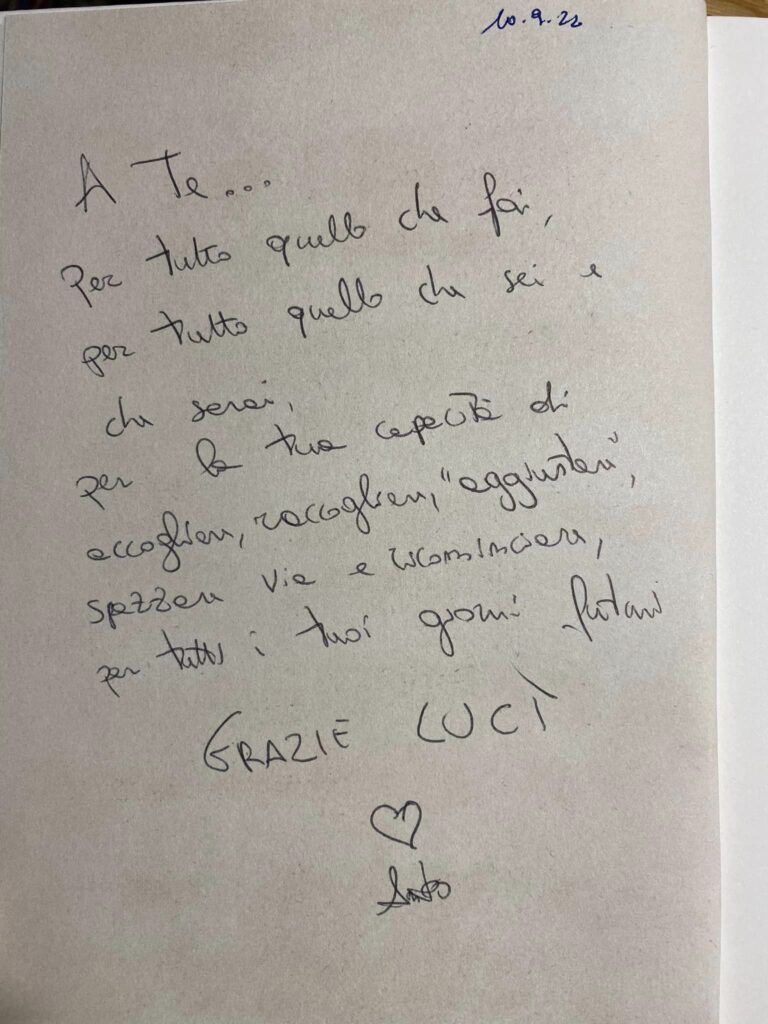 10.9.22
A Te...
Per tutto quello che fai,
per tutto quello che sei e
che serai,
per la tua capacità di
accogliere, raccogliere, "aggiustare",
spazzare via e ricominciare,
per tutti i tuoi giorni futuri
GRAZIE LUCÌ
Anto